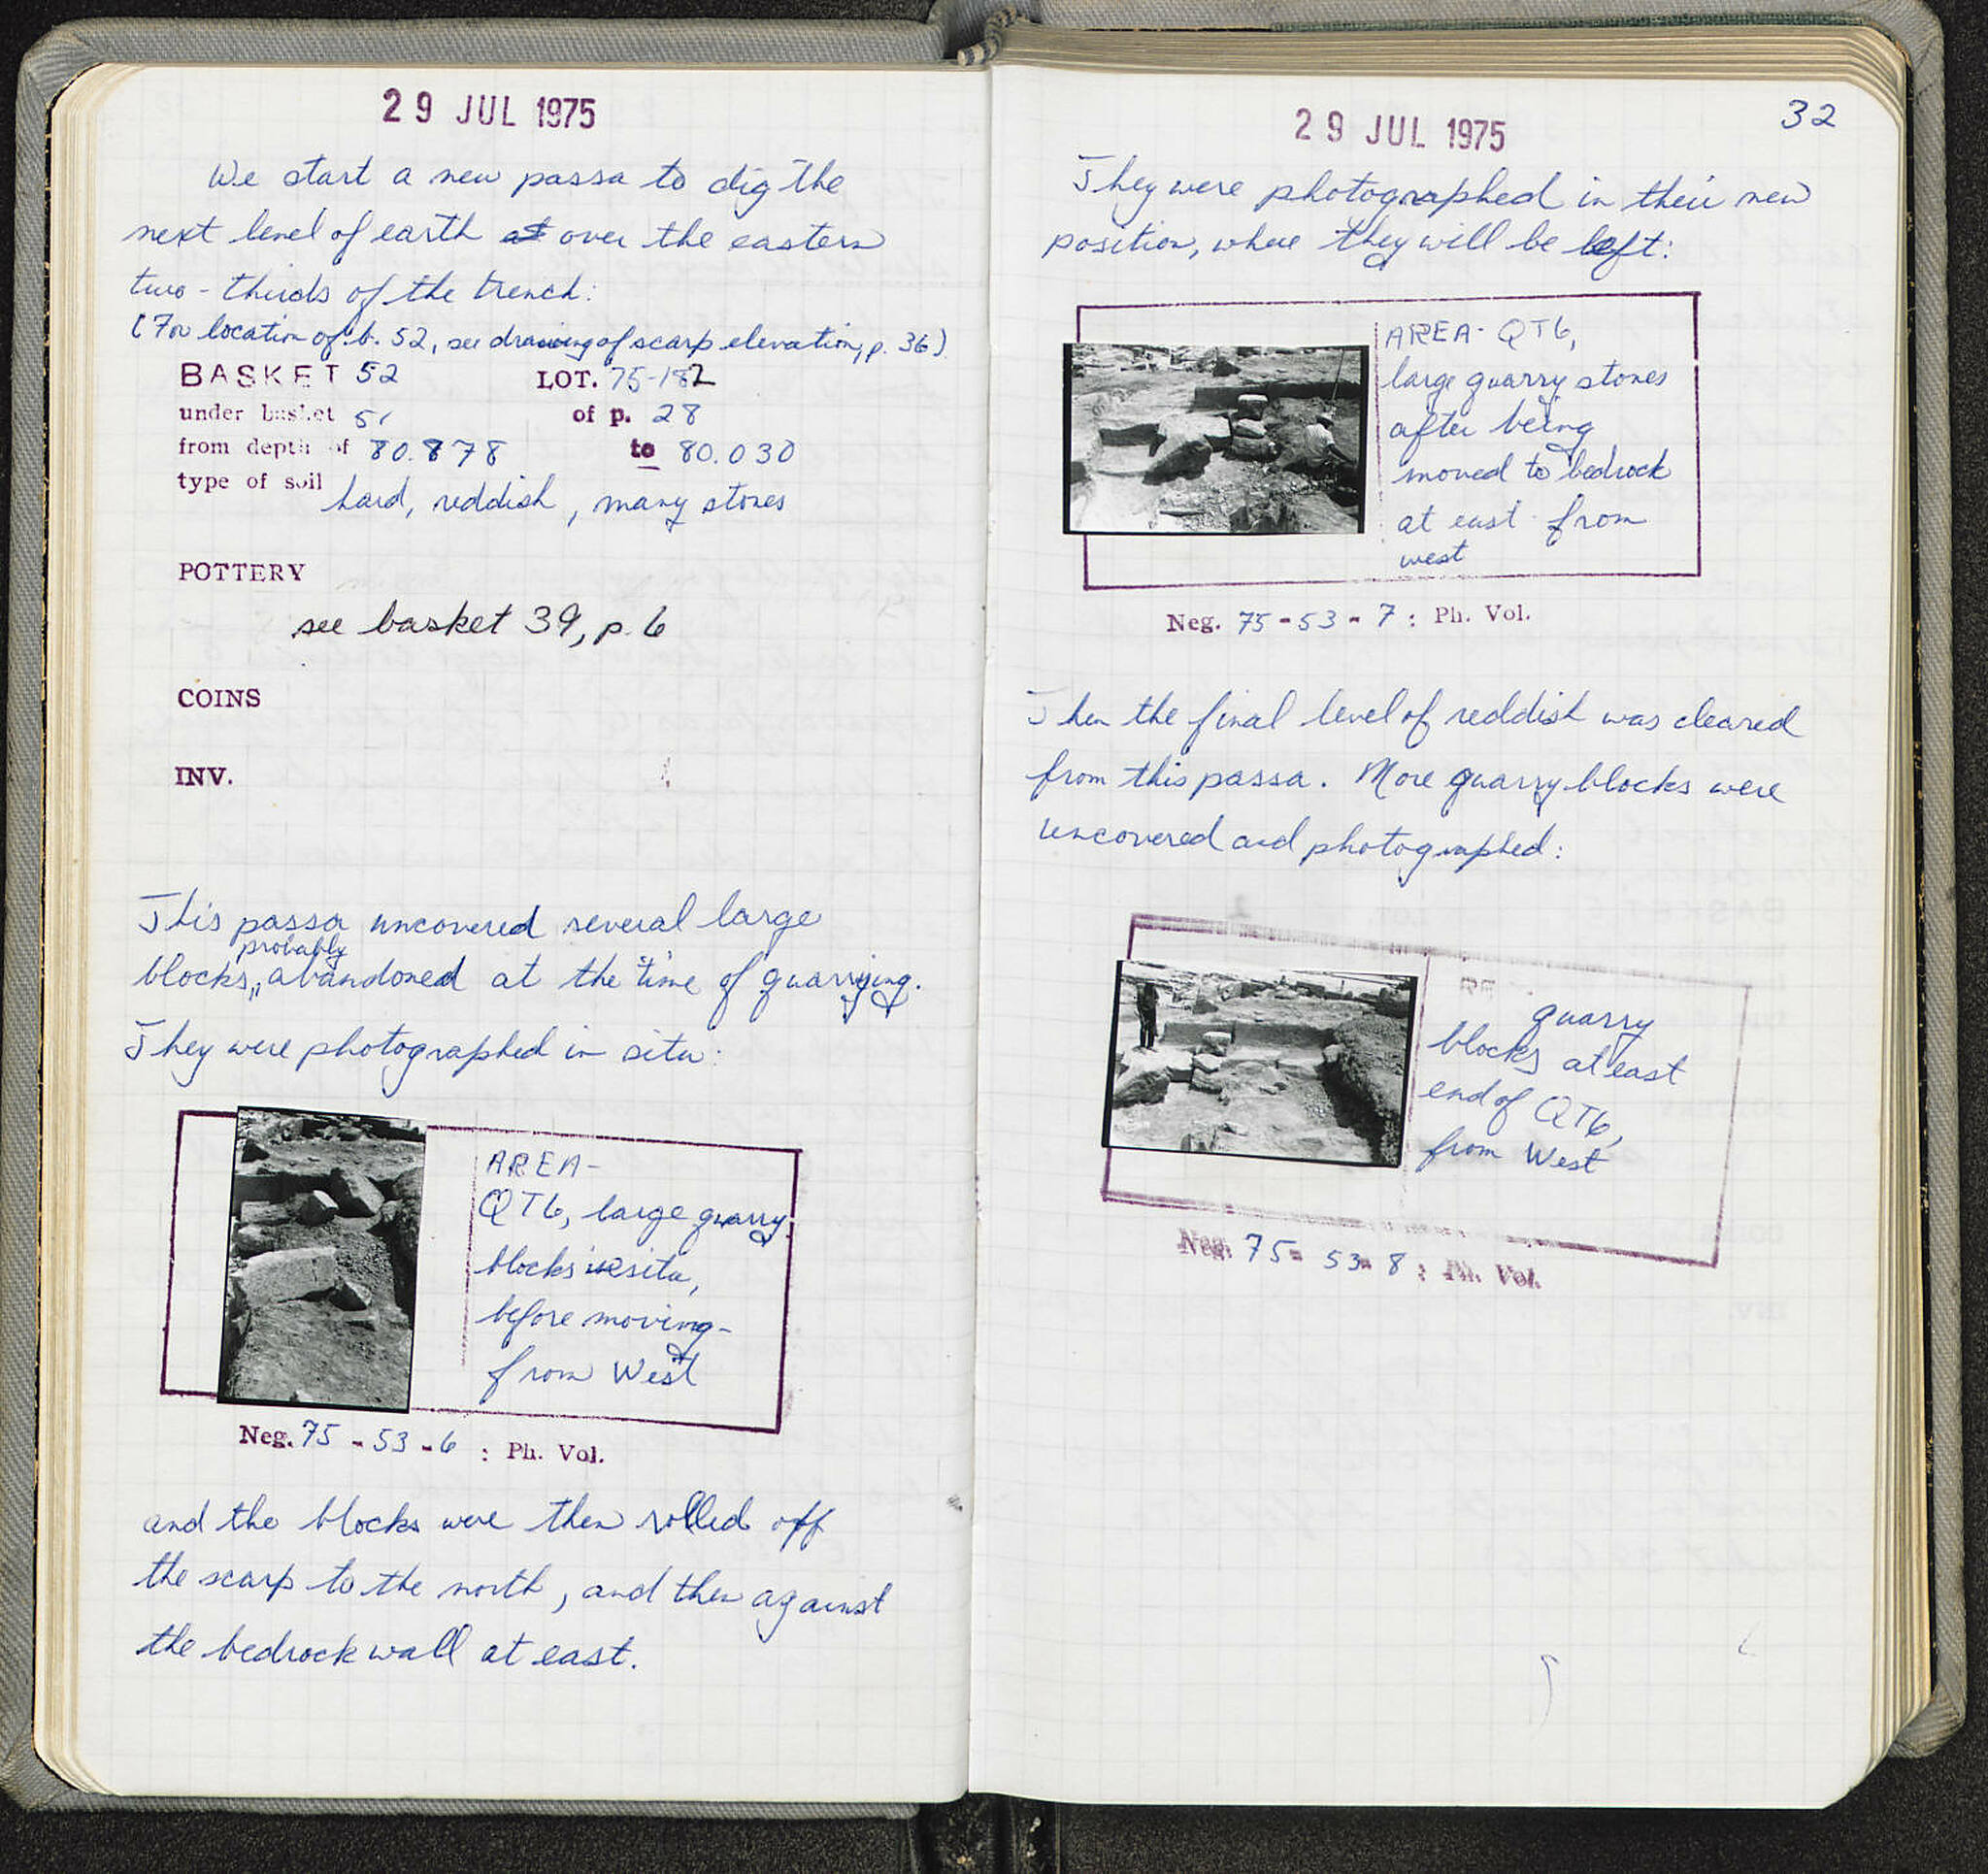 29 JUL 1975
We start a new passa to dig the
next level of earth at over the eastern
two-thirds of the trench:
(For location of b. 52, see drawing of scarp elevation, p. 36).
BASKET 52 LOT. 75-182
under basket 51 of p. 28
from depth of 80.878 to 80.030
type of soil hard, reddish, many stones
POTTERY
see basket 39, p. 6
COINS
INV.
This passa uncovered several large
probably
blocks, abandoned at the time of quarrying.
They were photographed in situ:
AREA-
QT6, large quarry
blocks in situ,
before moving-
from West
Neg. 75-53-6 : Ph. Vol.
and the blocks were then rolled off
the scarp to the north, and then against
the bedrock wall at east.
32
29 JUL 1975
They were photographed in their new
position, where they will be left:
AREA- QT6,
large quarry stones
after being
moved to bedrock
at east from
west
Neg. 75-53-7 : Ph. Vol.
Then the final level of reddish was cleared
from this passa. More quarry blocks were
uncovered and photographed:
quarry
blocks at east
end of QT6,
from West
Neg. 75-53-8 : Ph. Vol.